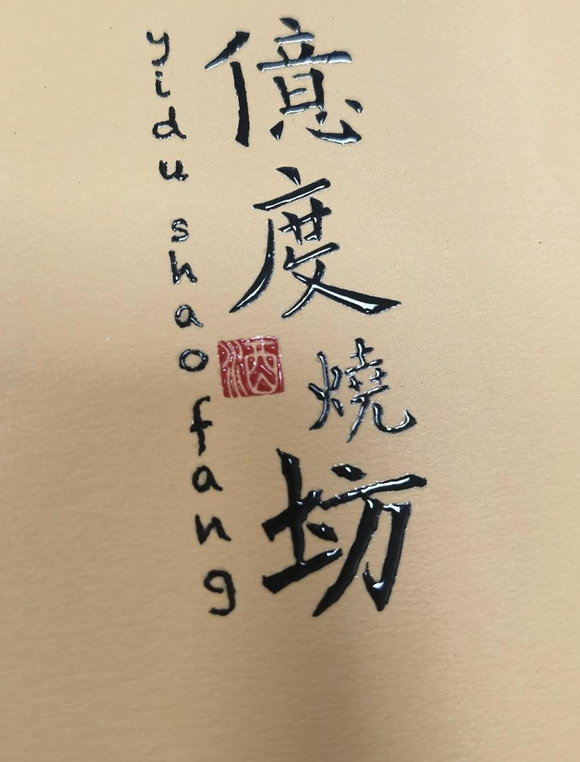 億度燒坊
酒
yidu shao fang